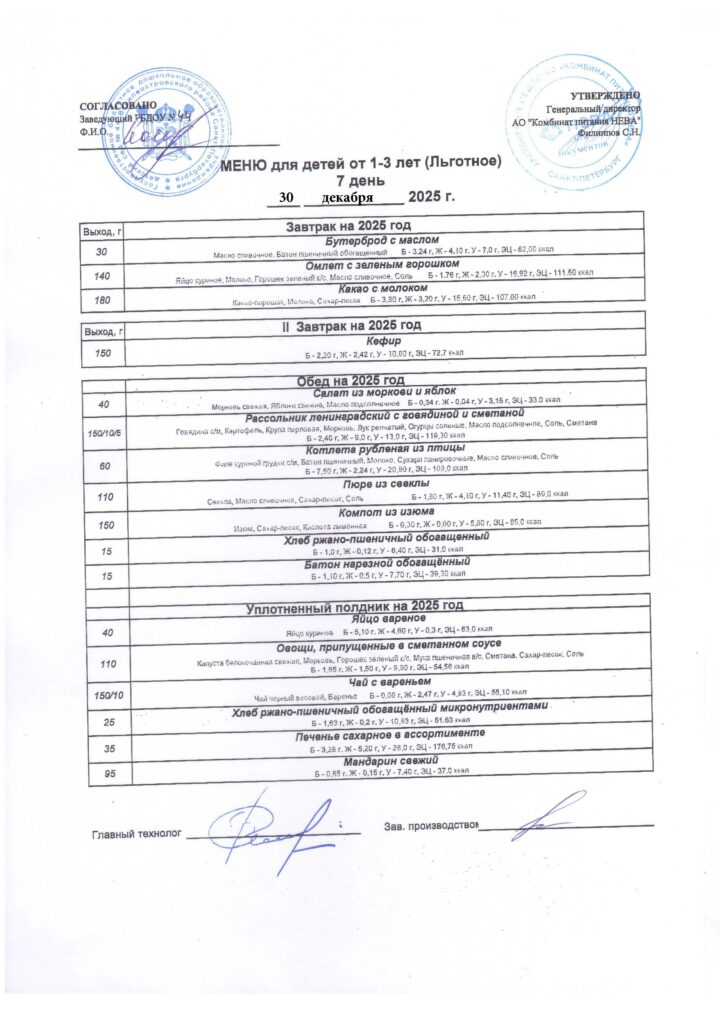 СОГЛАСОВАНО
Заведующий ГБДОУ №44
Ф.И.О.
УТВЕРЖДЕНО
Генеральный директор
АО "Комбинат питания НЕВА"
Филиппов С.Н.
МЕНЮ для детей от 1-3 лет (Льготное)
7 день
30 декабря 2025 г.
Выход, г
Завтрак на 2025 год
30
Бутерброд с маслом
Масло сливочное, Батон пшеничный обогащенный Б - 3,24 г, Ж - 4,10 г, У - 7,0 г, ЭЦ - 62,00 ккал
140
Омлет с зеленым горошком
Яйцо куриное, Молоко, Горошек зеленый к/с, Масло сливочное, Соль Б - 1,76 г, Ж - 2,30 г, У - 16,92 г, ЭЦ - 111,60 ккал
180
Какао с молоком
Какао-порошок, Молоко, Сахар-песок Б - 3,80 г, Ж - 3,20 г, У - 15,60 г, ЭЦ - 107,00 ккал
Выход, г
II Завтрак на 2025 год
150
Кефир
Б - 2,20 г, Ж - 2,42 г, У - 10,60 г, ЭЦ - 72,7 ккал
Обед на 2025 год
40
Салат из моркови и яблок
Морковь свежая, Яблоки свежие, Масло подсолнечное Б - 0,34 г, Ж - 0,04 г, У - 3,15 г, ЭЦ - 33,0 ккал
150/10/5
Рассольник ленинградский с говядиной и сметаной
Говядина с/м, Картофель, Крупа перловая, Морковь, Лук репчатый, Огурцы соленые, Масло подсолнечное, Соль, Сметана
Б - 2,40 г, Ж - 9,0 г, У - 13,0 г, ЭЦ - 119,30 ккал
60
Котлета рубленая из птицы
Филе куриной грудки с/м, Батон пшеничный, Молоко, Сухари панировочные, Масло сливочное, Соль
Б - 7,50 г, Ж - 2,24 г, У - 20,60 г, ЭЦ - 103,0 ккал
110
Пюре из свеклы
Свекла, Масло сливочное, Сахар-песок, Соль Б - 1,60 г, Ж - 4,10 г, У - 11,40 г, ЭЦ - 89,0 ккал
150
Компот из изюма
Изюм, Сахар-песок, Кислота лимонная Б - 0,30 г, Ж - 0,00 г, У - 5,60 г, ЭЦ - 65,0 ккал
15
Хлеб ржано-пшеничный обогащенный
Б - 1,0 г, Ж - 0,12 г, У - 6,40 г, ЭЦ - 31,0 ккал
15
Батон нарезной обогащённый
Б - 1,10 г, Ж - 0,5 г, У - 7,70 г, ЭЦ - 39,30 ккал
Уплотненный полдник на 2025 год
40
Яйцо вареное
Яйцо куриное Б - 5,10 г, Ж - 4,60 г, У - 0,3 г, ЭЦ - 63,0 ккал
110
Овощи, припущенные в сметанном соусе
Капуста белокочанная свежая, Морковь, Горошек зеленый к/с, Мука пшеничная в/с, Сметана, Сахар-песок, Соль
Б - 1,95 г, Ж - 1,50 г, У - 9,90 г, ЭЦ - 54,56 ккал
150/10
Чай с вареньем
Чай черный весовой, Варенье Б - 0,06 г, Ж - 2,47 г, У - 4,83 г, ЭЦ - 55,10 ккал
25
Хлеб ржано-пшеничный обогащённый микронутриентами
Б - 1,63 г, Ж - 0,2 г, У - 10,63 г, ЭЦ - 51,63 ккал
35
Печенье сахарное в ассортименте
Б - 3,28 г, Ж - 5,20 г, У - 26,0 г, ЭЦ - 176,75 ккал
95
Мандарин свежий
Б - 0,65 г, Ж - 0,15 г, У - 7,40 г, ЭЦ - 37,0 ккал
Главный технолог
Зав. производством